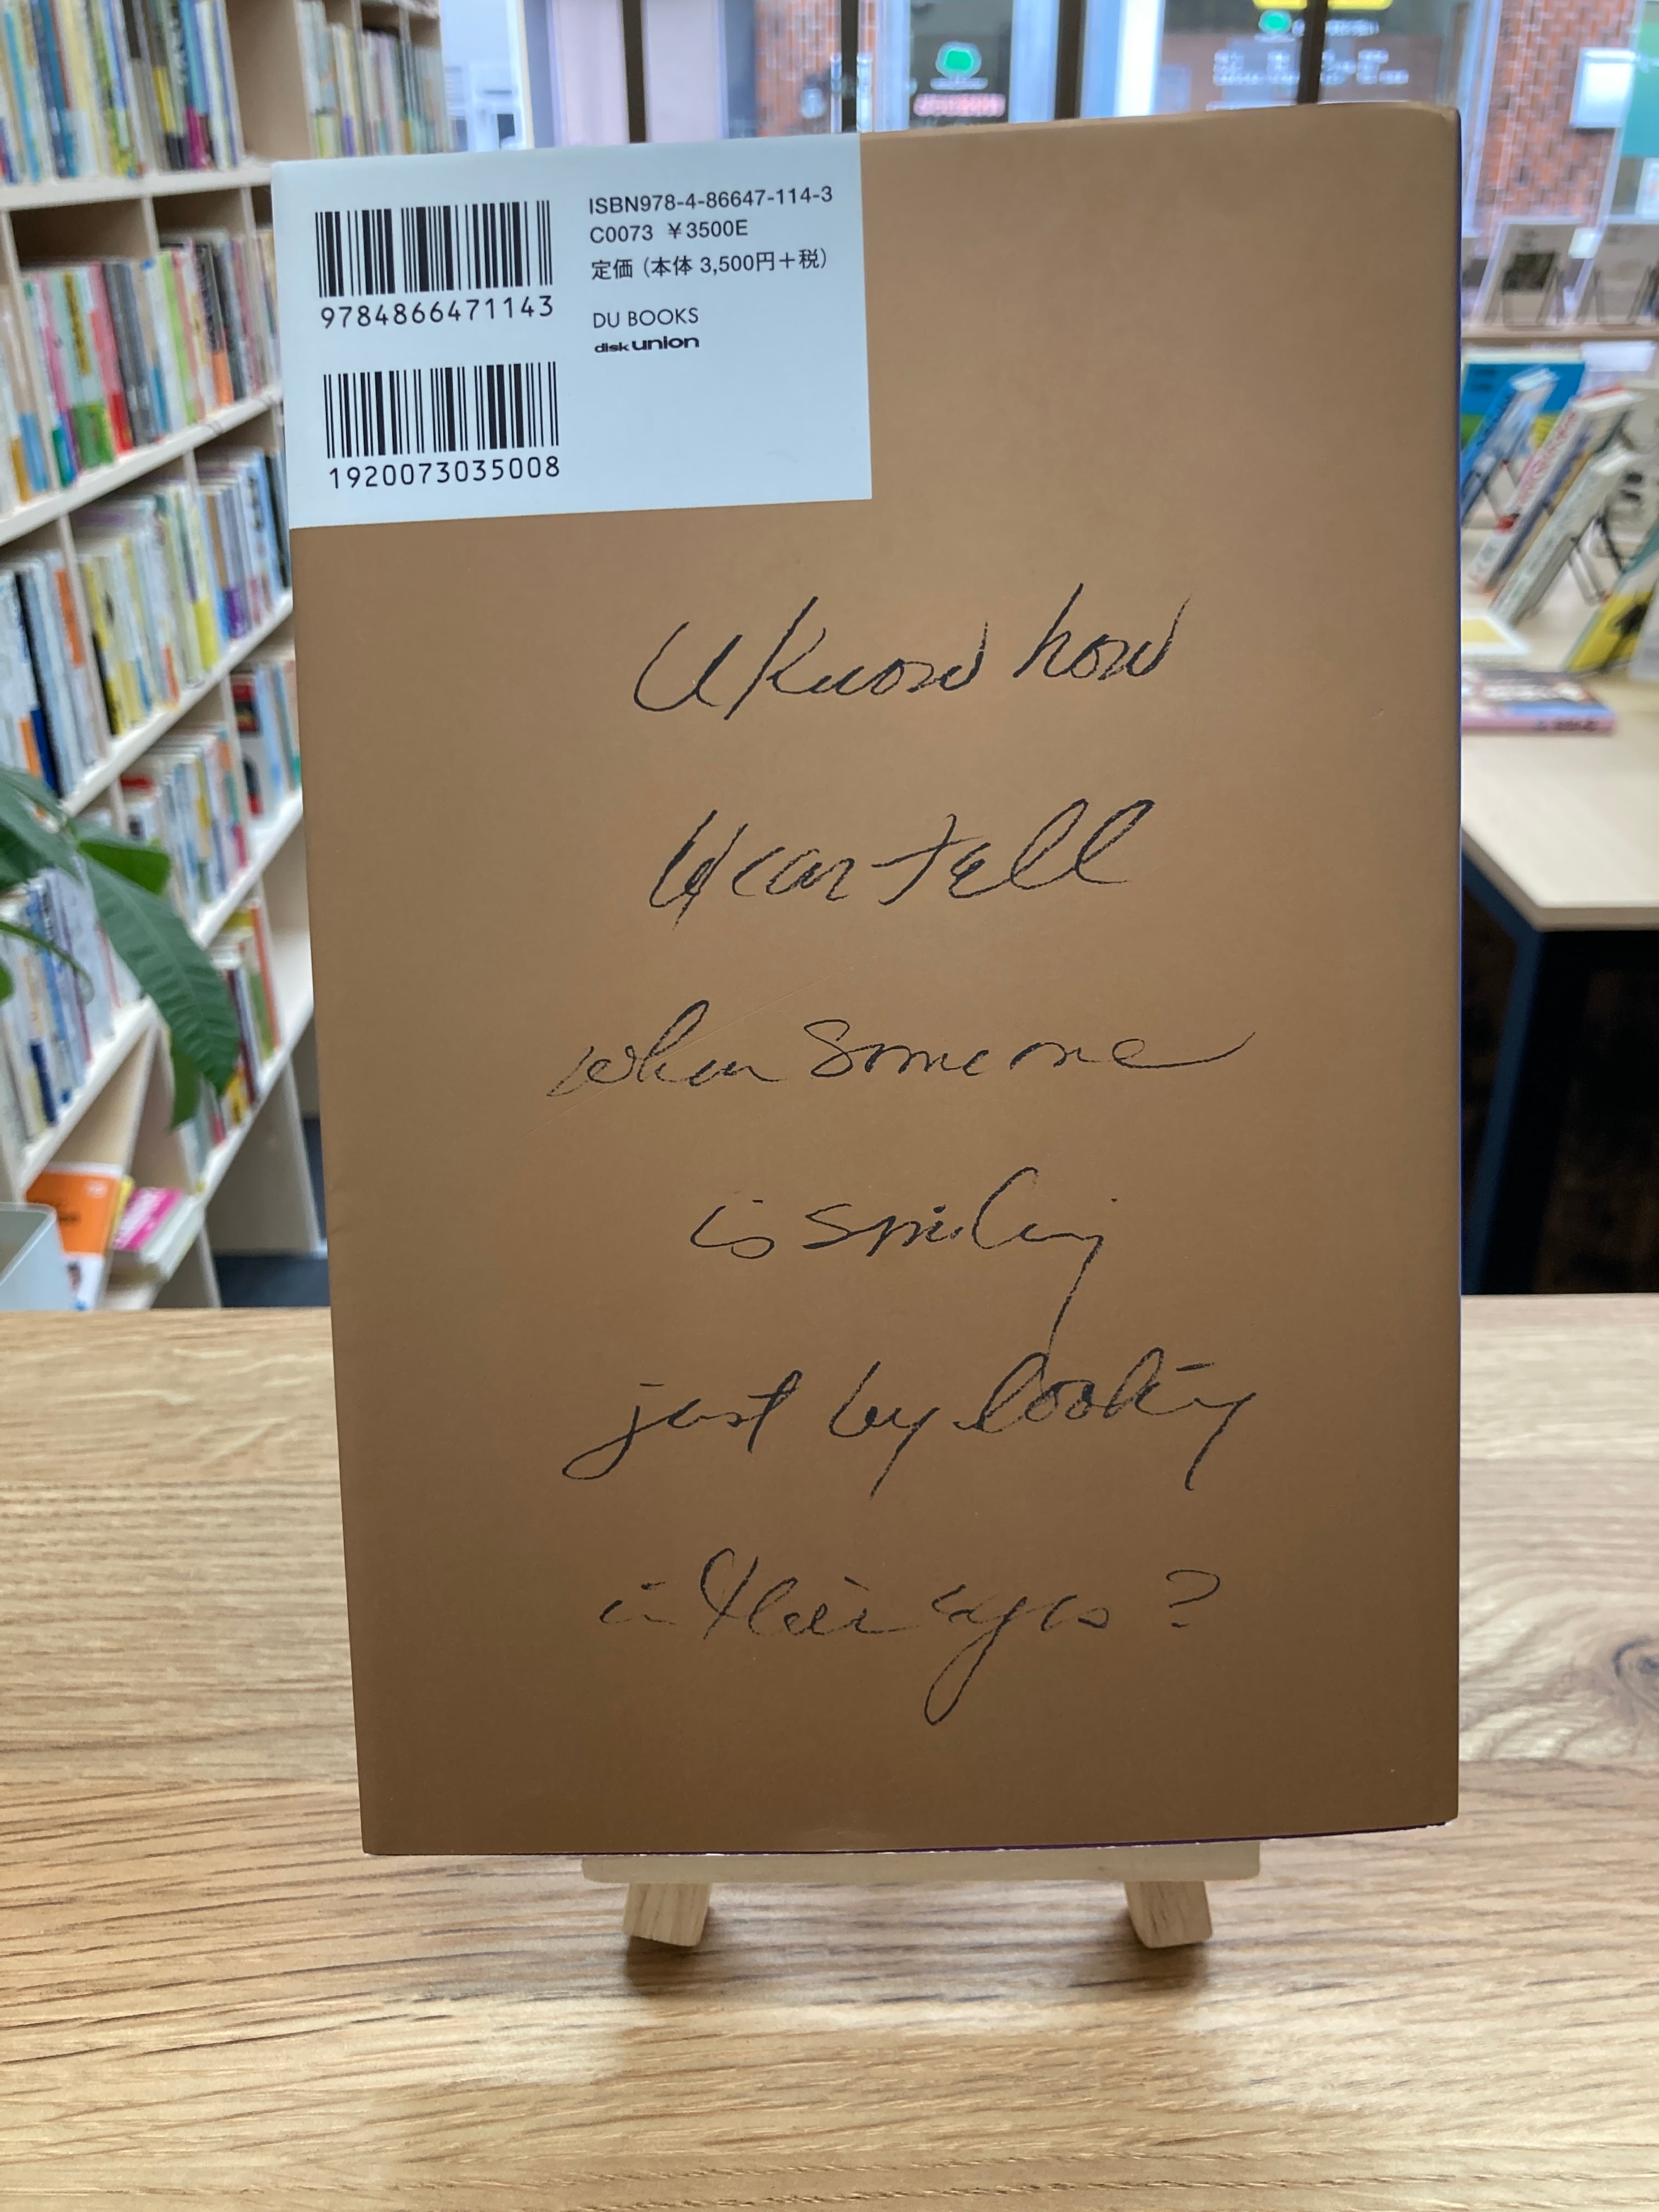 ISBN978-4-86647-114-3
C0073 ¥3500E
定価（本体 3,500円＋税）
9784866471143
DU BOOKS
disk union
1920073035008
U Know how
U can tell
when someone
is smiling
just by looking
in their eyes?